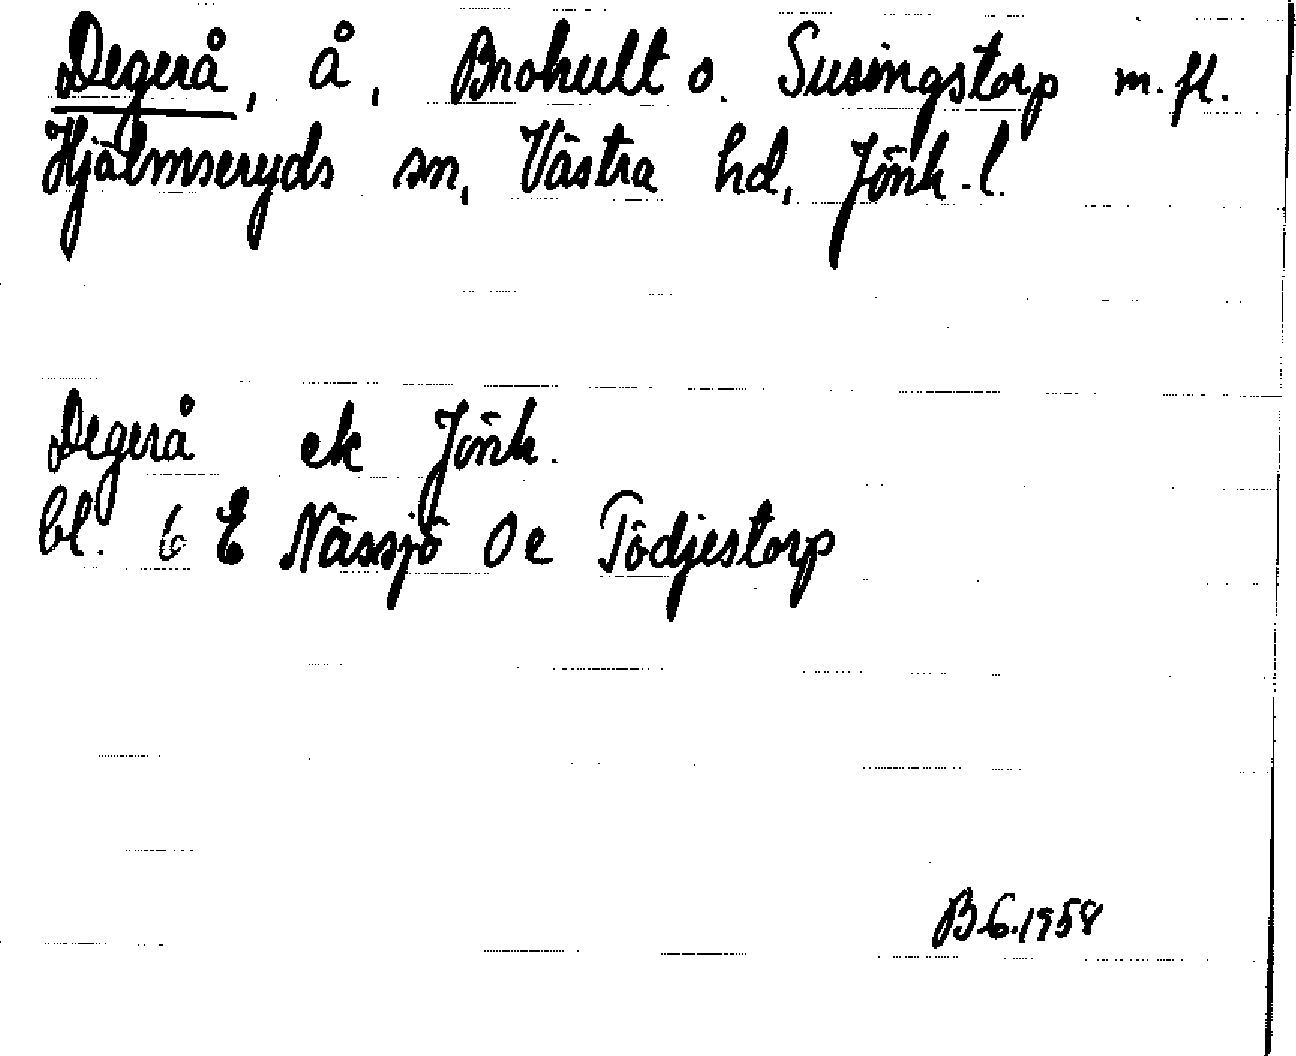 Degerå, å, Brohult o. Susingstorp m. fl.
Hjälmseryds sn, Västra hd, Jönk. l.
Degerå ek Jönk.
bl. 6 E Nässjö 0 e Tödjestorp
B.G. 1958